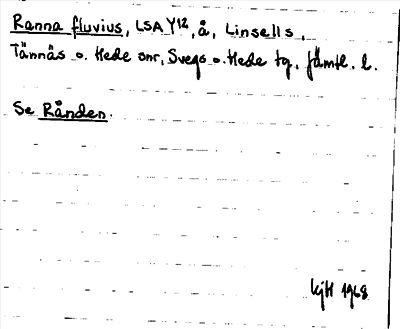 Ranna fluvius, LSA Y12, å, Linsells,
Tännäs o. Hede snr, Svegs o. Hede tg, Jämtl. l.
Se Rånden.
kjH 1968